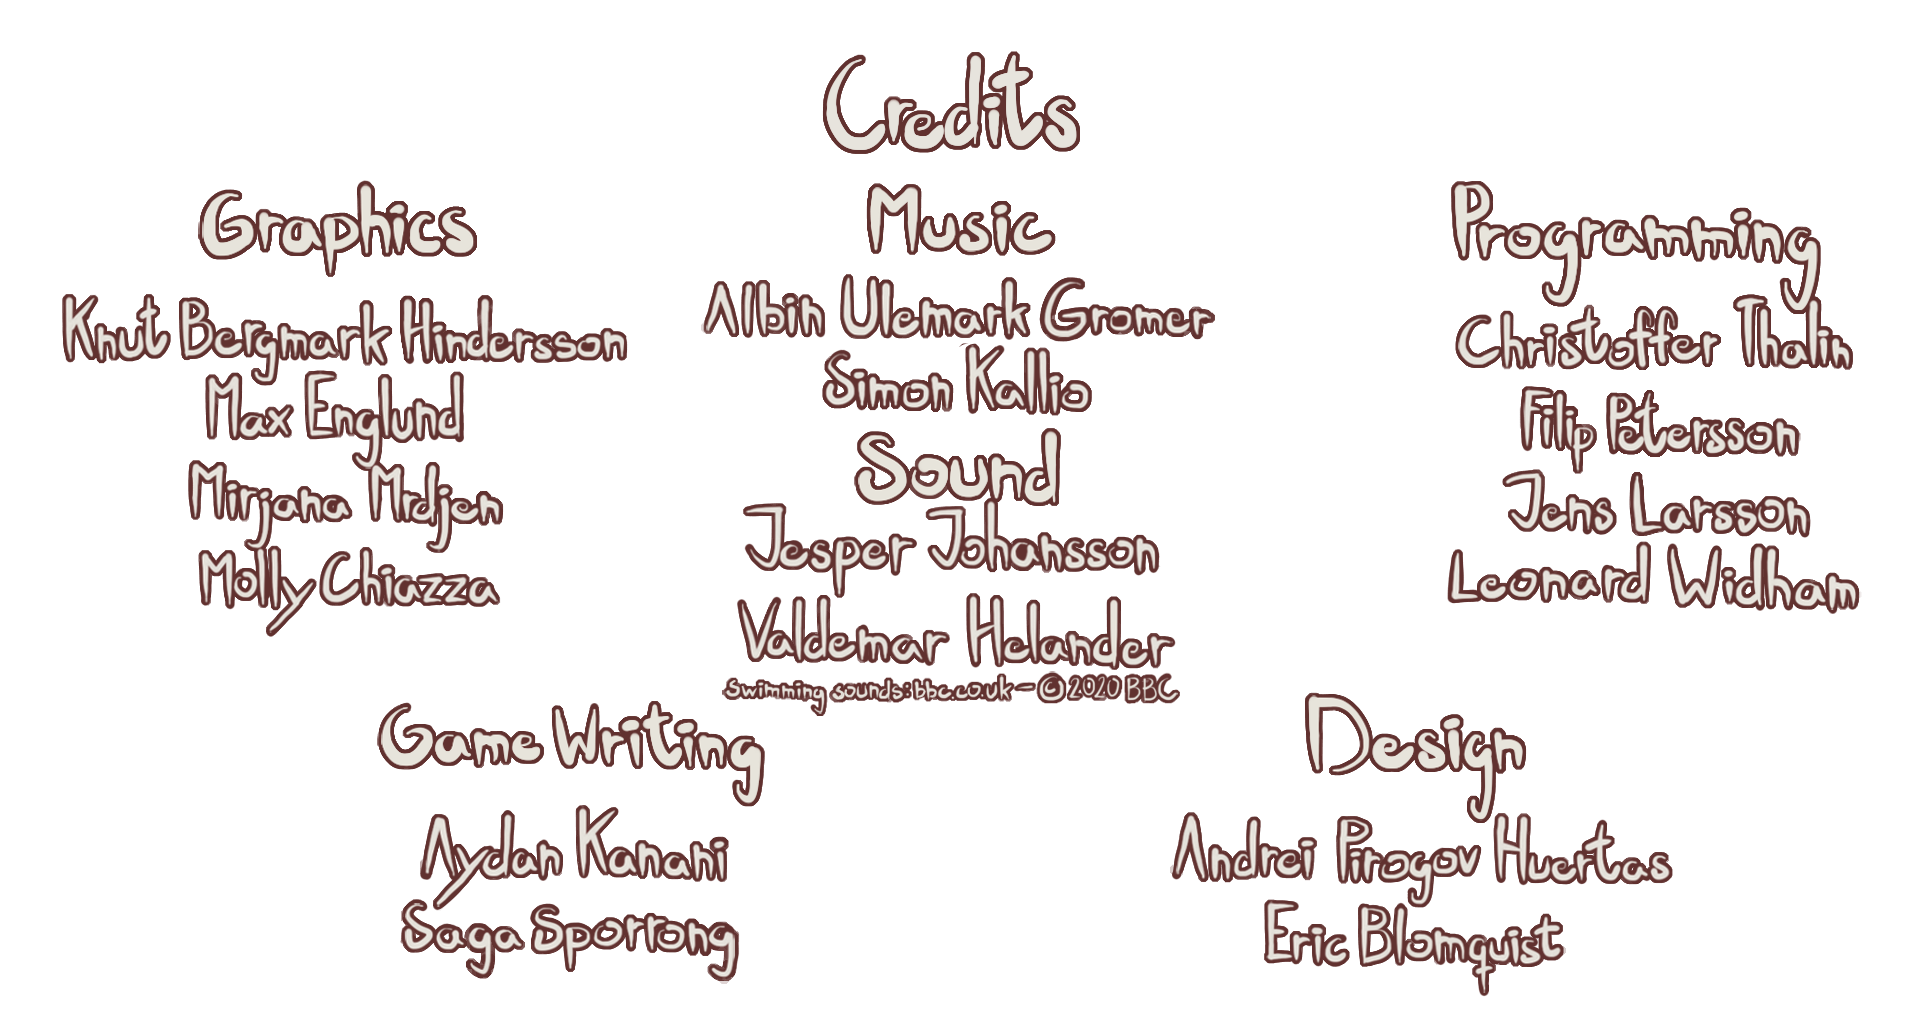 Credits
Graphics
Knut Bergmark Hindersson
Max Englund
Mirjana Mrdjen
Molly Chiazza
Music
Albin Ulemark Gromer
Simon Kallio
Sound
Jesper Johansson
Valdemar Helander
Swimming sounds: bbc.co.uk - © 2020 BBC
Programming
Christoffer Thalin
Filip Petersson
Jens Larsson
Leonard Widham
Game Writing
Aydan Kanani
Saga Sporrong
Design
Andrei Pirogov Huertas
Eric Blomquist